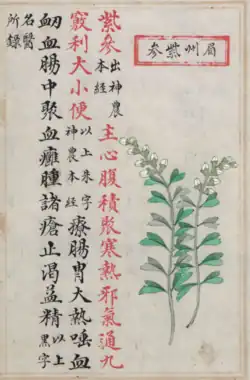 眉州紫參
紫參出神農本經主心腹積聚寒熱邪氣通九
竅利大小便以上朱字神農本經療腸胃大熱唾血
衂血腸中聚血癰腫諸瘡止渴益精以上黑字
名醫所錄